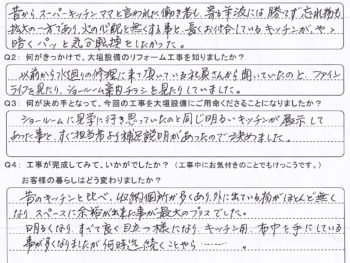 昔からスーパーキッチンママと言われた働き者も、寄る年波には勝てず忘れ物も
拡大の一方であり、火の心配を無くする事と、長くお付合している キッチンが、やゝ
暗く パッと 気分転換 としたかった。
Q2：何がきっかけで、大垣設備のリフォーム工事を知りましたか？
以前から水廻りの修理に来て頂いている社員さんから聞いていたのと、ファイン
ライフを見たり、ショールーム案内チラシを見たりしていました。
Q3：何が決め手となって、今回の工事を大垣設備にご用命くださることになりましたか？
ショールームに見学に行き思っていたのと同じ明るいキッチンが展示して
あった事と、すぐ担当者より補足説明があったので決めました。
Q4：工事が完成してみて、いかがでしたか？（工事中にお気付きのことでもけっこうです。）
お客様の暮らしはどう変わりましたか？
昔のキッチンと比べ、収納個所が多くあり、外に出ている物がほとんど無く
なり スペースに余裕が出来た事が最大のプラスでした。
明るくなり、すべて良く目立つ様になり、キッチン用、布巾を手にしている
事が多くなりましたが何時迄続くことやら………。